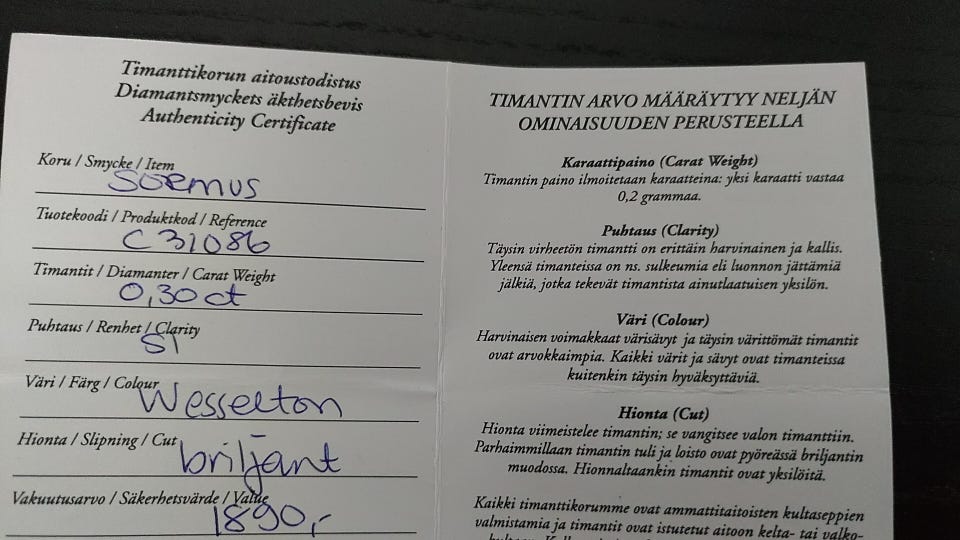 Timanttikorun aitoustodistus
Diamantsmyckets äkthetsbevis
Authenticity Certificate
Koru / Smycke / Item
Sormus
Tuotekoodi / Produktkod / Reference
C31086
Timantit / Diamanter / Carat Weight
0,30 ct
Puhtaus / Renhet / Clarity
SI
Väri / Färg / Colour
Wesselton
Hionta / Slipning / Cut
briljant
Vakuutusarvo / Säkerhetsvärde / Value
1890,-
TIMANTIN ARVO MÄÄRÄYTYY NELJÄN
OMINAISUUDEN PERUSTEELLA
Karaattipaino (Carat Weight)
Timantin paino ilmoitetaan karaatteina: yksi karaatti vastaa
0,2 grammaa.
Puhtaus (Clarity)
Täysin virheetön timantti on erittäin harvinainen ja kallis.
Yleensä timanteissa on ns. sulkeumia eli luonnon jättämiä
jälkiä, jotka tekevät timantista ainutlaatuisen yksilön.
Väri (Colour)
Harvinaisen voimakkaat värisävyt ja täysin värittömät timantit
ovat arvokkaimpia. Kaikki värit ja sävyt ovat timanteissa
kuitenkin täysin hyväksyttäviä.
Hionta (Cut)
Hionta viimeistelee timantin; se vangitsee valon timanttiin.
Parhaimmillaan timantin tuli ja loisto ovat pyöreässä briljantin
muodossa. Hionnaltaankin timantit ovat yksilöitä.
Kaikki timanttikorumme ovat ammattitaitoisten kultaseppien
valmistamia ja timantit ovat istutetut aitoon kelta- tai valko-